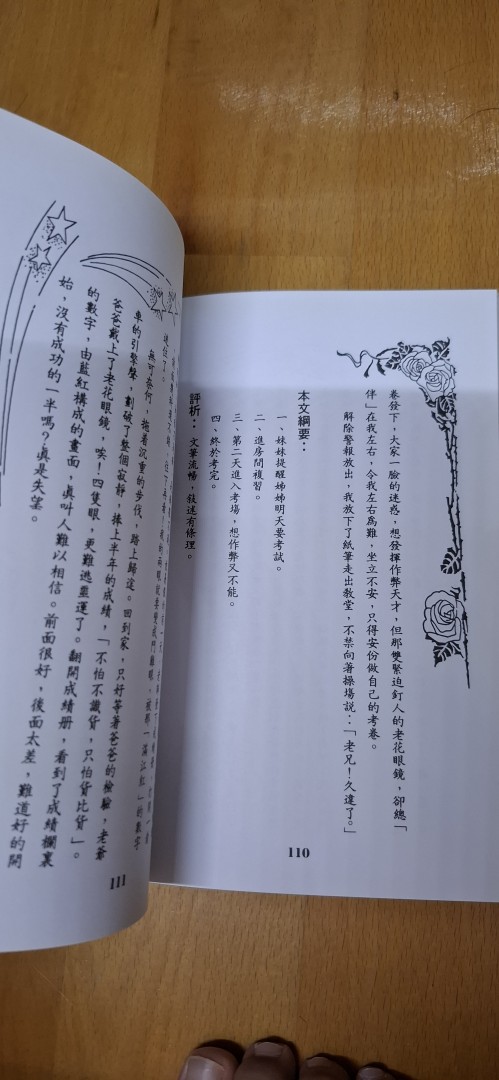 卷發下，大家一臉的迷惑，想發揮作弊天才，但那雙緊迫釘人的老花眼鏡，卻總「
伴」在我左右，令我左右為難，坐立不安，只得安份做自己的考卷。
解除警報放出，我放下了紙筆走出教堂，不禁向著操場説：「老兄！久違了。」
本文綱要：
一、妹妹提醒姊姊明天要考試。
二、進房間複習。
三、第二天進入考場，想作弊又不能。
四、終於考完。
評析：文筆流暢，敍述有條理。
110
無可奈何，拖着沉重的步伐，踏上歸途。回到家，只好等著爸爸的檢驗，老爺
車的引擎聲，劃破了整個寂靜，捧上半年的成績，「不怕不識貨，只怕貨比貨」。
爸爸戴上了老花眼鏡，唉！四隻眼，更難逃噩運了。翻開成績册，看到了成績欄裏
的數字，由藍紅構成的畫面，眞叫人難以相信。前面很好，後面太差，難道好的開
始，沒有成功的一半嗎？眞是失望。
111